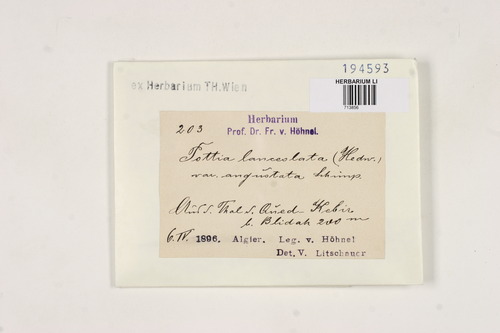 194593
ex Herbarium TH.Wien
HERBARIUM LI
713856
Herbarium
203 Prof. Dr. Fr. v. Höhnel.
Pottia lanceolata (Hedw.)
var. angustata Schimp.
Aus d. Thal d. Oued-Kebir
b. Blidah 200 m
6. IV. 1896. Algier. Leg. v. Höhnel
Det. V. Litschauer